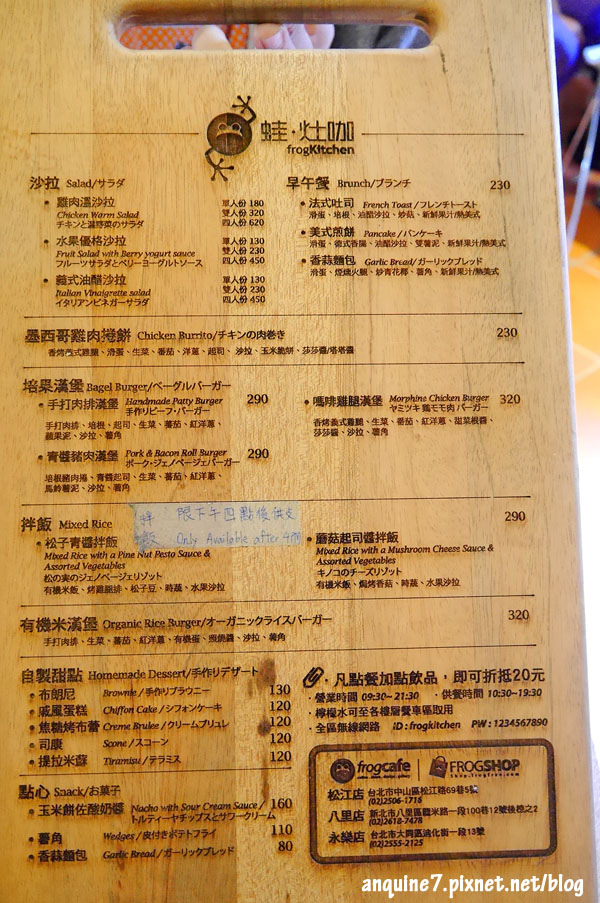 蛙·灶咖
frogKitchen
沙拉 Salad/サラダ
• 雞肉溫沙拉 單人份 180
Chicken Warm Salad 雙人份 320
チキンと温野菜のサラダ 四人份 620
• 水果優格沙拉 單人份 130
Fruit Salad with Berry yogurt sauce 雙人份 230
フルーツサラダとベリーヨーグルトソース 四人份 450
• 義式油醋沙拉 單人份 130
Italian Vinaigrette salad 雙人份 230
イタリアンビネガーサラダ 四人份 450
早午餐 Brunch/ブランチ 230
• 法式吐司 French Toast / フレンチトースト
滑蛋、培根、油醋沙拉、炒菇、新鮮果汁/熱美式
• 美式煎餅 Pancake / パンケーキ
滑蛋、德式香腸、油醋沙拉、雙薯泥、新鮮果汁/熱美式
• 香蒜麵包 Garlic Bread/ガーリックブレッド
滑蛋、煙燻火腿、炒青花椰、薯角、新鮮果汁/熱美式
墨西哥雞肉捲餅 Chicken Burrito/チキンの肉巻き 230
香烤義式雞腿、滑蛋、生菜、番茄、洋蔥、起司、沙拉、玉米脆餅、莎莎醬/塔塔醬
培果漢堡 Bagel Burger/ベーグルバーガー
• 手打肉排漢堡 Handmade Patty Burger 290
手作りビーフ・バーガー
手打肉排、培根、起司、生菜、蕃茄、紅洋蔥、
蘋果泥、沙拉、薯角
• 青醬豬肉漢堡 Pork & Bacon Roll Burger 290
ポーク・ジェノベージェバーガー
培根豬肉捲、青醬起司、生菜、蕃茄、紅洋蔥、
馬鈴薯泥、沙拉、薯角
• 嗎啡雞腿漢堡 Morphine Chicken Burger 320
ヤミツキ 鶏モモ肉 バーガー
香烤義式雞腿、生菜、番茄、紅洋蔥、甜菜根醬、
莎莎醬、沙拉、薯角
拌飯 Mixed Rice 290
拌飯 限下午四點後供支
Only Available after 4:00
• 松子青醬拌飯
Mixed Rice with a Pine Nut Pesto Sauce &
Assorted Vegetables
松の実のジェノベージェリゾット
有機米飯、烤雞腿排、松子豆、時蔬、水果沙拉
• 蘑菇起司醬拌飯
Mixed Rice with a Mushroom Cheese Sauce &
Assorted Vegetables
キノコのチーズリゾット
有機米飯、焗烤香菇、時蔬、水果沙拉
有機米漢堡 Organic Rice Burger/オーガニックライスバーガー 320
手打肉排、生菜、蕃茄、紅洋蔥、有機蛋、照燒醬、沙拉、薯角
自製甜點 Homemade Dessert/手作りデザート
• 布朗尼 Brownie / 手作りブラウニー 130
• 戚風蛋糕 Chiffon Cake / シフォンケーキ 120
• 焦糖烤布蕾 Creme Brulee / クリームブリュレ 120
• 司康 Scone / スコーン 120
• 提拉米蘇 Tiramisu / テラミス 120
點心 Snack/お菓子
• 玉米餅佐酸奶醬 Nacho with Sour Cream Sauce / 160
トルティーヤチップスとサワークリーム
• 薯角 Wedges / 皮付きポテトフライ 110
• 香蒜麵包 Garlic Bread / ガーリックブレッド 80
凡點餐加點飲品，即可折抵20元
• 營業時間 09:30~21:30 • 供餐時間 10:30~19:30
• 檸檬水可至各樓層餐車區取用
• 全區無線網路 ID : frogkitchen PW : 1234567890
frogcafe
FROGSHOP
Shop.frogfree.com
松江店 台北市中山區松江路69巷5號
(02)2506-1716
八里店 新北市八里區龍米路一段100巷12號後棟之2
(02)2618-7478
永樂店 台北市大同區迪化街一段13號
(02)2555-2125
anquine7.pixnet.net/blog